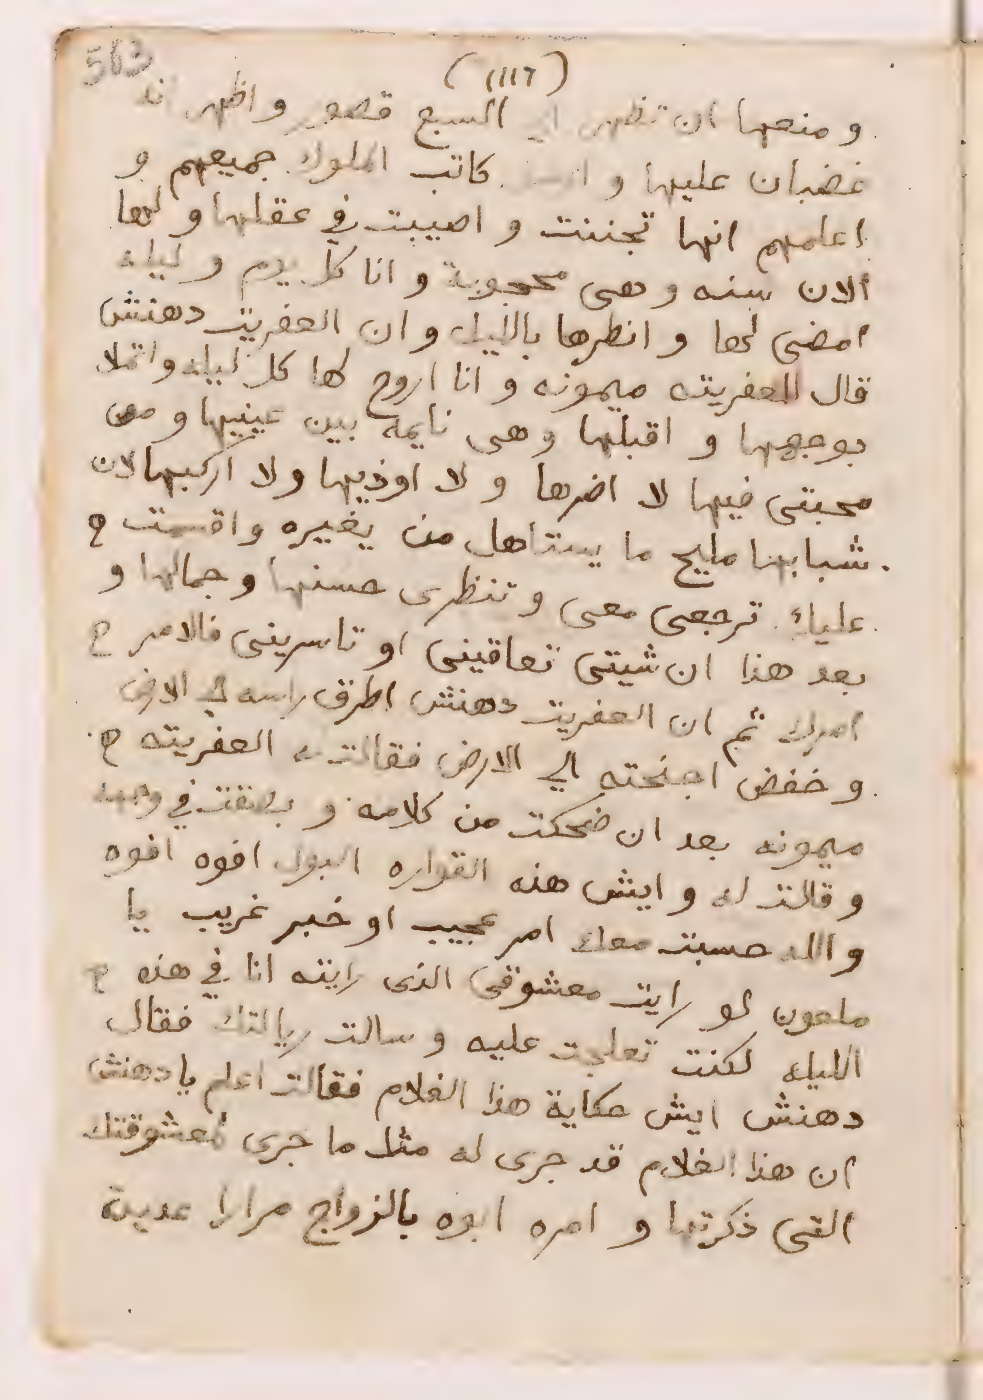 563
(١١١٦)
و منعها ان تظهر الي السبع قصور و اظهر انه
غضبان عليها و كاتب الملوك جميعهم و
اعلمهم انها تجننت و اصيبت في عقلها و لها
الان سنه و هى محجوبة و انا كل يوم و ليله
امضى لها و انظرها بالليل و ان العفريت دهنش
قال للعفريته ميمونه و انا اروح لها كل ليله واتملا
بوجهها و اقبلها وهى نايمه بين عينيها و من
محبتى فيها لا اضرها و لا اوذيها ولا اركبها لان
شبابها مليح ما يستاهل من يغيره واقسمت ح
عليك ترجعى معى و تنظرى حسنها و جمالها و
بعد هذا ان شيتى تعاقينى او تاسرينى فالامر ح
امرك ثم ان العفريت دهنش اطرق راسه الي الارض
و خفض اجنحته الي الارض فقالت له العفريته ح
ميمونه بعد ان ضحكت من كلامه و بصقت في وجهه
و قالت له و ايش هذه القواره البول افوه افوه
و الله حسبت معك امر عجيب او خبر غريب يا
ملعون لو رايت معشوقى الذى رايته انا في هذه ح
الليله لكنت تعلجت عليه و سالت ريالتك فقال
دهنش ايش حكاية هذا الغلام فقالت اعلم يا دهنش
ان هذا الغلام قد جرى له مثل ما جرى لمعشوقتك
التى ذكرتها و امره ابوه بالزواج مرارا عديدة